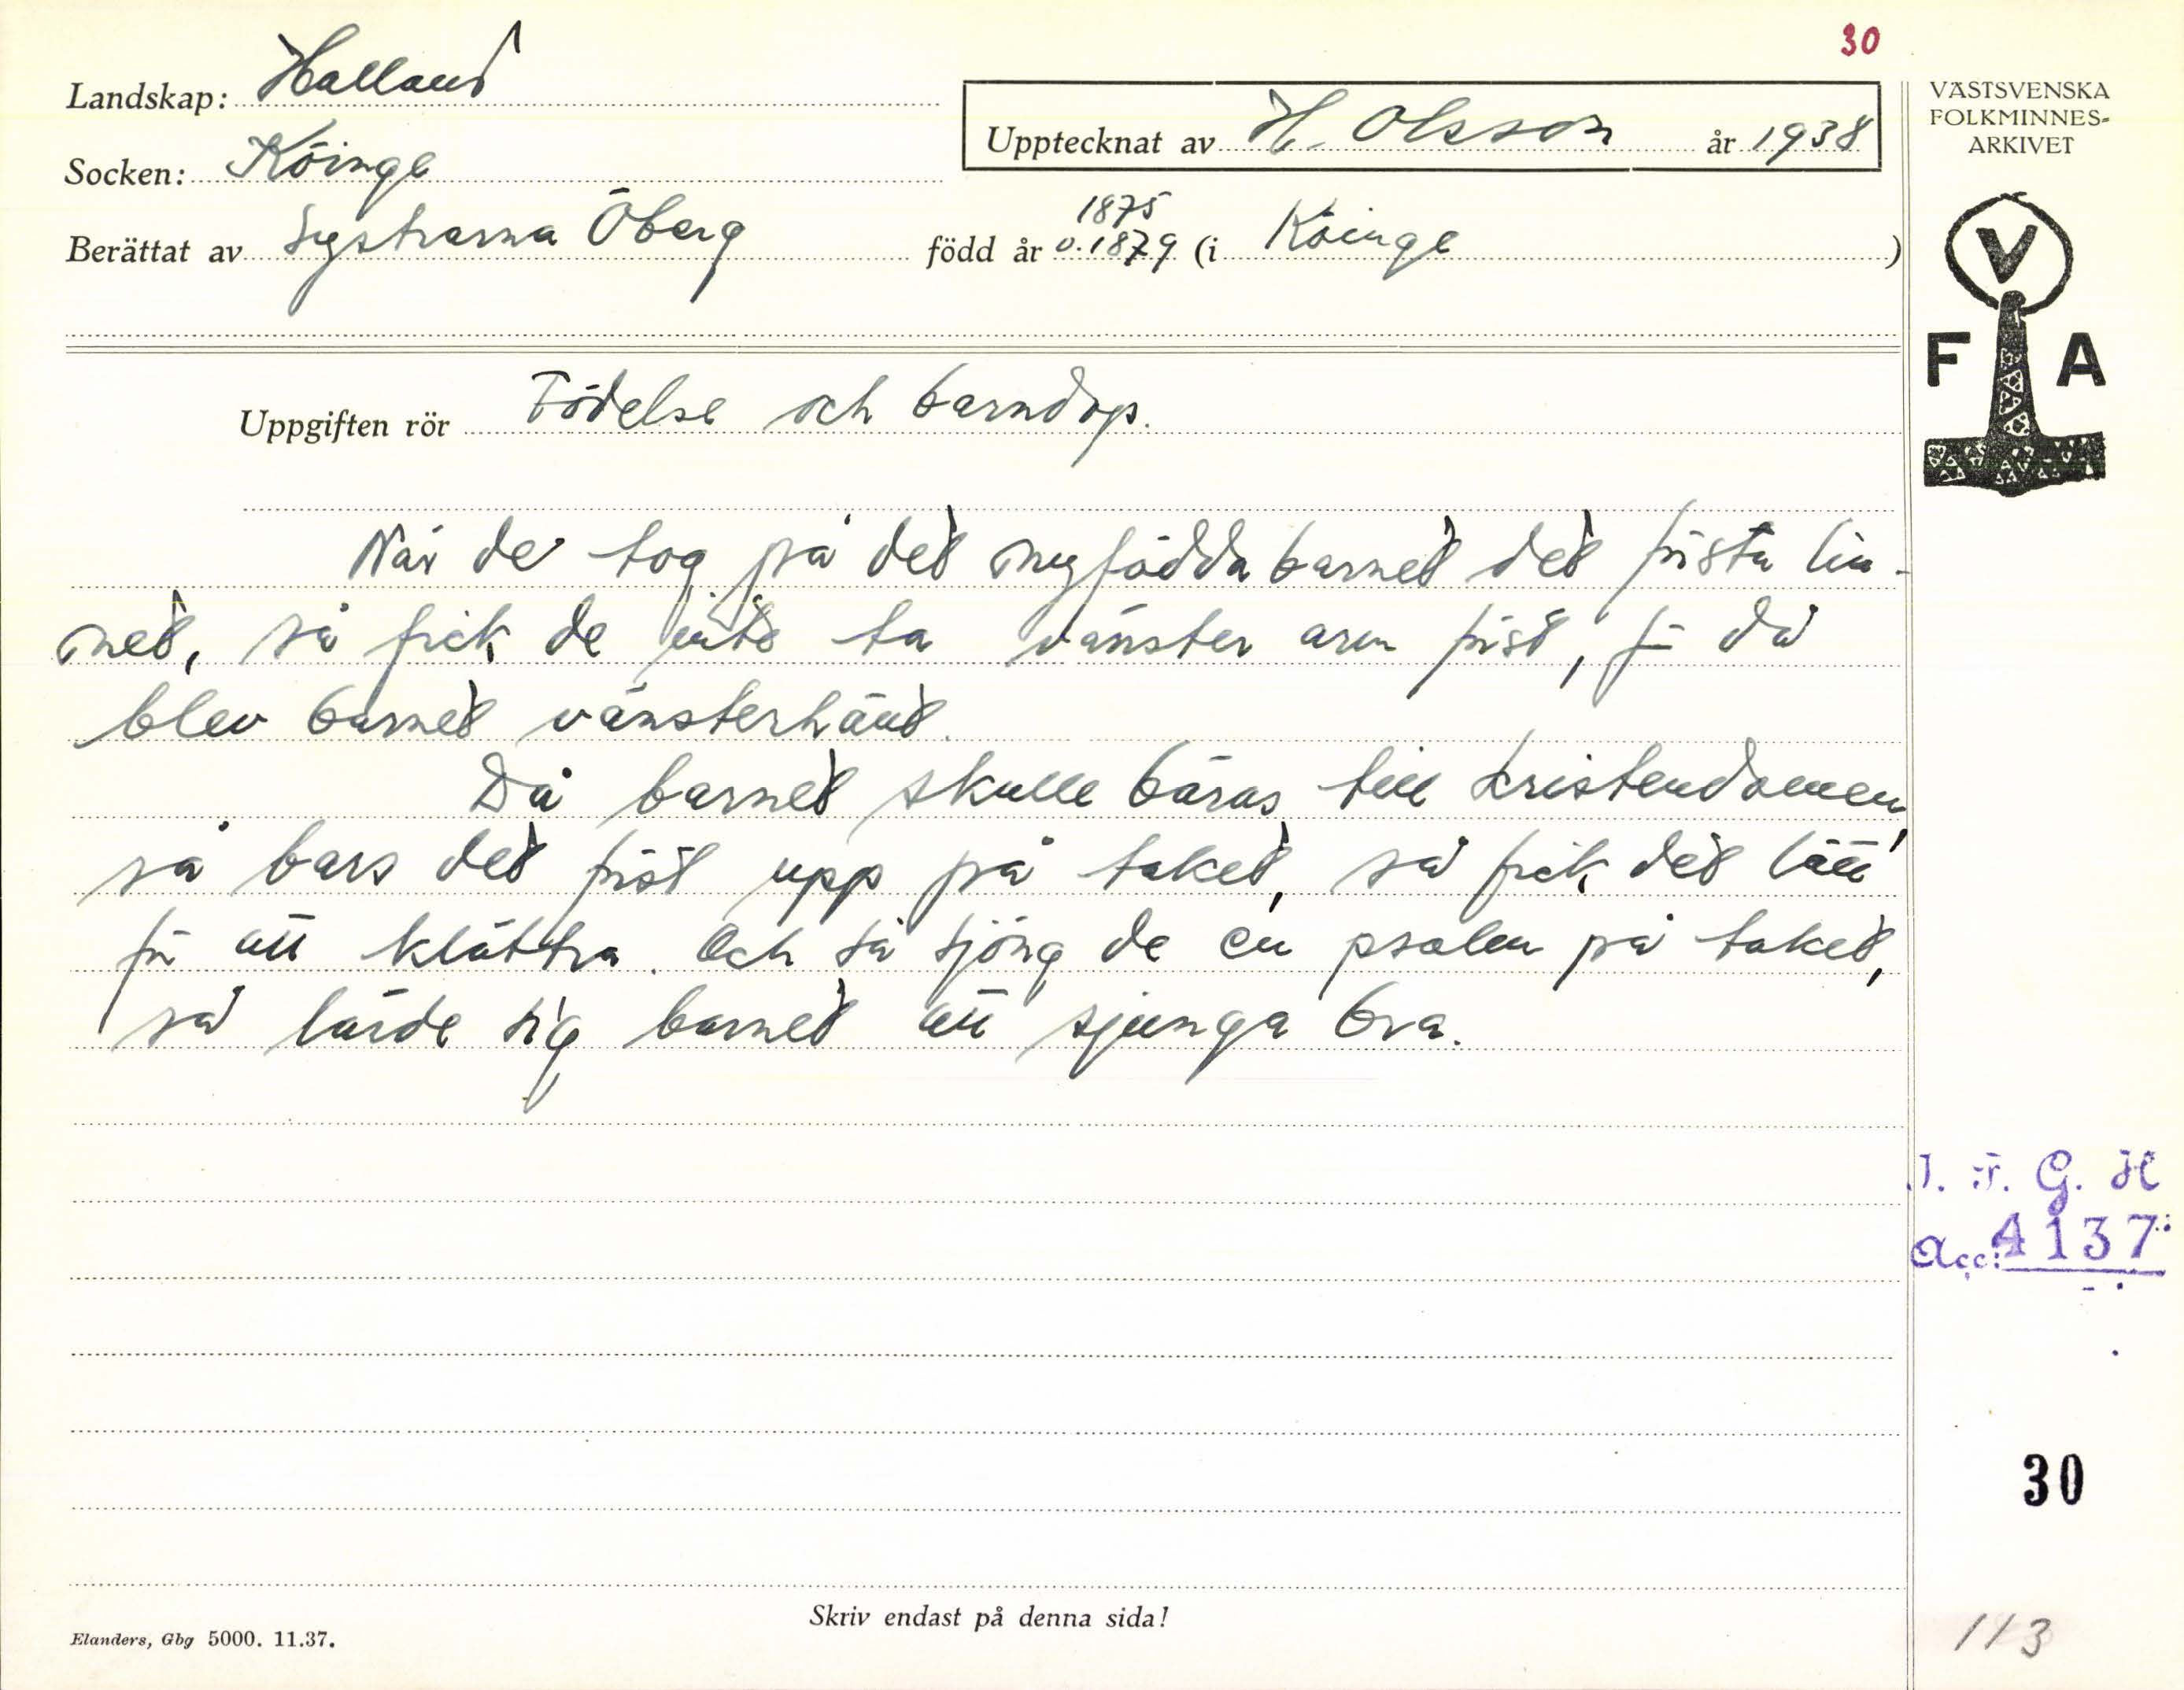 30
Landskap: Halland
VÄSTSVENSKA
FOLKMINNES-
ARKIVET
Upptecknat av H. Olsson år 1938
Socken: Köinge
1875
Berättat av Systrarna Öberg född år o. 1879 (i Köinge)
V
F A
Uppgiften rör Födelse och barndop.
När de tog på det nyfödda barnet det första lin-
net, så fick de inte ta vänster arm först, för då
blev barnet vänsterhänt.
Då barnet skulle bäras till kristendomen,
så bars det först upp på taket, så fick det lätt
för att klättra. Och så sjöng de en psalm på taket,
så lärde sig barnet att sjunga bra.
I. F. G. H
Acc: 4137
30
Skriv endast på denna sida!
Elanders, Gbg 5000. 11.37.
113